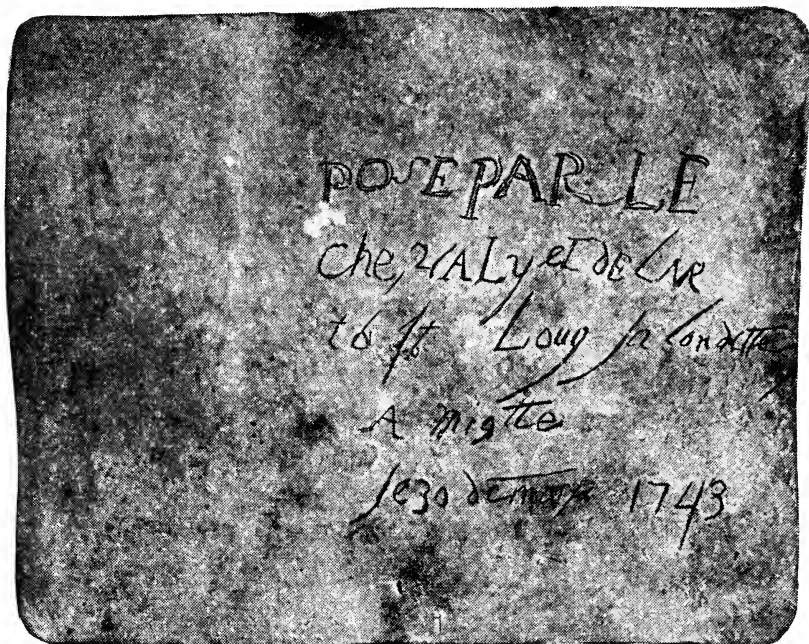 POSE PAR LE
Che, VALyET DE LAVR
to St Louy la Londette
A miotte
le 30 de mars 1743